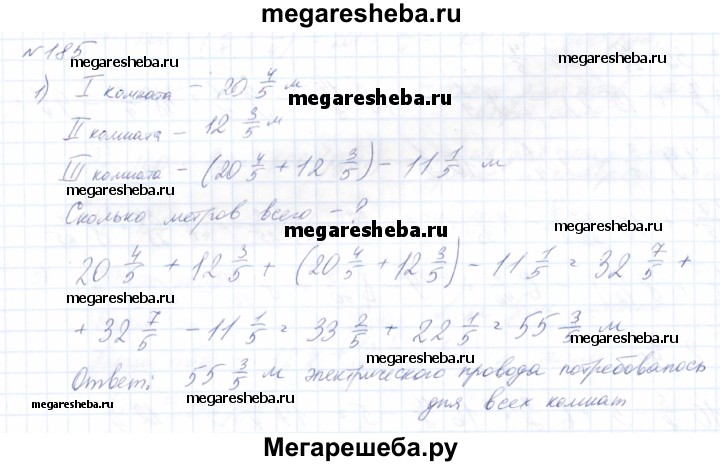 megaresheba.ru
№185
megaresheba.ru
megaresheba.ru
1) I комната - 20 4/5 м
megaresheba.ru
II комната - 12 3/5 м
megaresheba.ru
III комната - (20 4/5 + 12 3/5) - 11 1/5 м
megaresheba.ru
Сколько метров всего - ?
megaresheba.ru
megaresheba.ru
20 4/5 + 12 3/5 + (20 4/5 + 12 3/5) - 11 1/5 = 32 7/5 +
megaresheba.ru
+ 32 7/5 - 11 1/5 = 33 2/5 + 22 1/5 = 55 3/5 м
megaresheba.ru
Ответ: 55 3/5 м электрического провода потребовалось
megaresheba.ru
megaresheba.ru
для всех комнат
Мегарешеба.ру